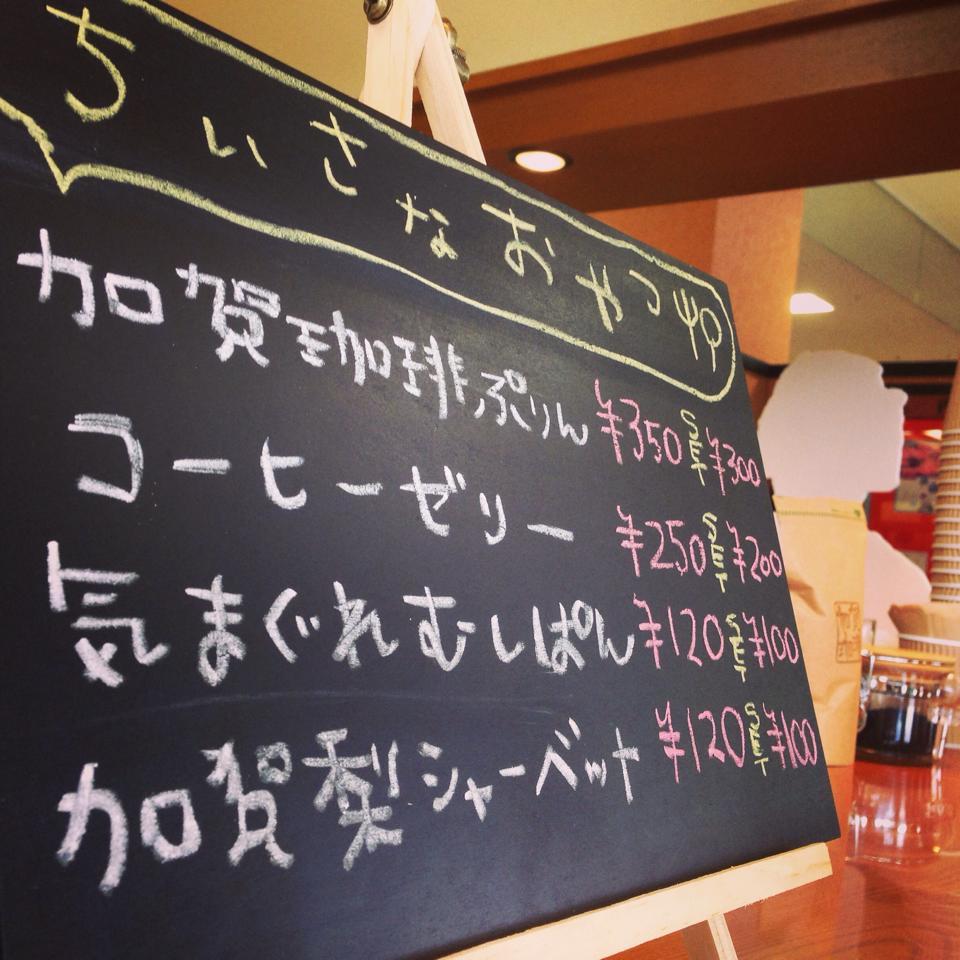 ちいさなおやつ
加賀珈琲ぷりん ¥350 SET ¥300
コーヒーゼリー ¥250 SET ¥200
気まぐれむしぱん ¥120 SET ¥100
加賀梨シャーベット ¥120 SET ¥100